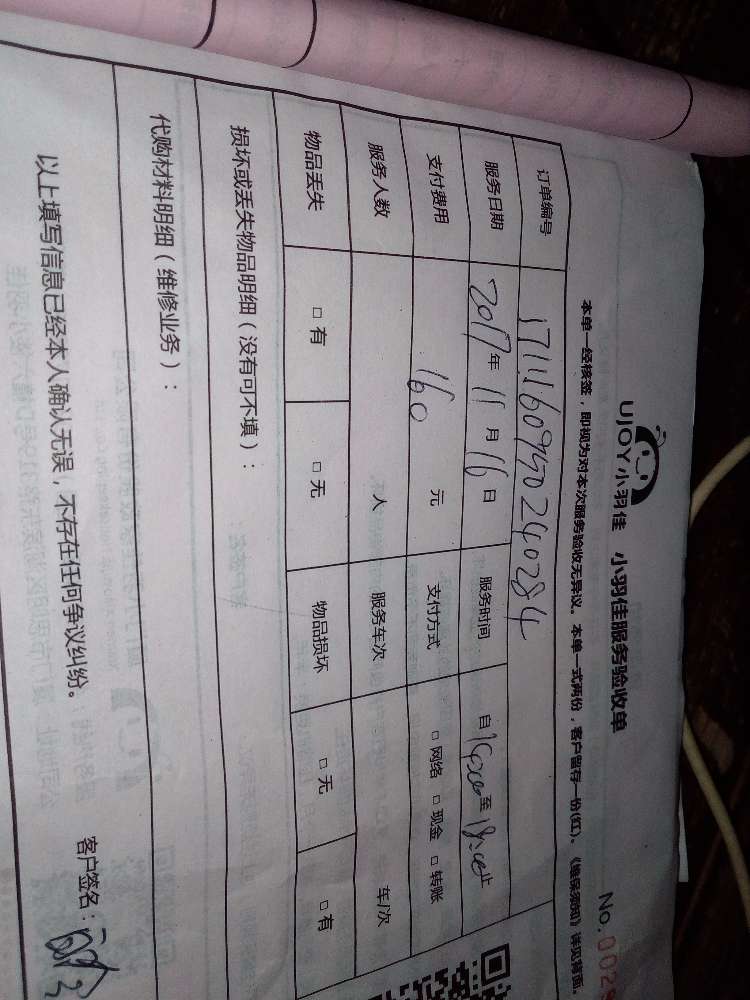 UJOY小羽佳 小羽佳服务验收单
No.002
本单一经核签，即视为对本次服务验收无异议。本单一式两份，客户留存一份(红)。《维保须知》详见背面。
订单编号 17111609450240284
服务日期 2017年11月16日 服务时间 自 至 止
支付费用 160元 支付方式 □网络 □现金 □转账
服务人数 人 服务车次 车/次
物品丢失 □有 □无 物品损坏 □无 □有
损坏或丢失物品明细（没有可不填）：
代购材料明细（维修业务）：
以上填写信息已经本人确认无误，不存在任何争议纠纷。
客户签名：